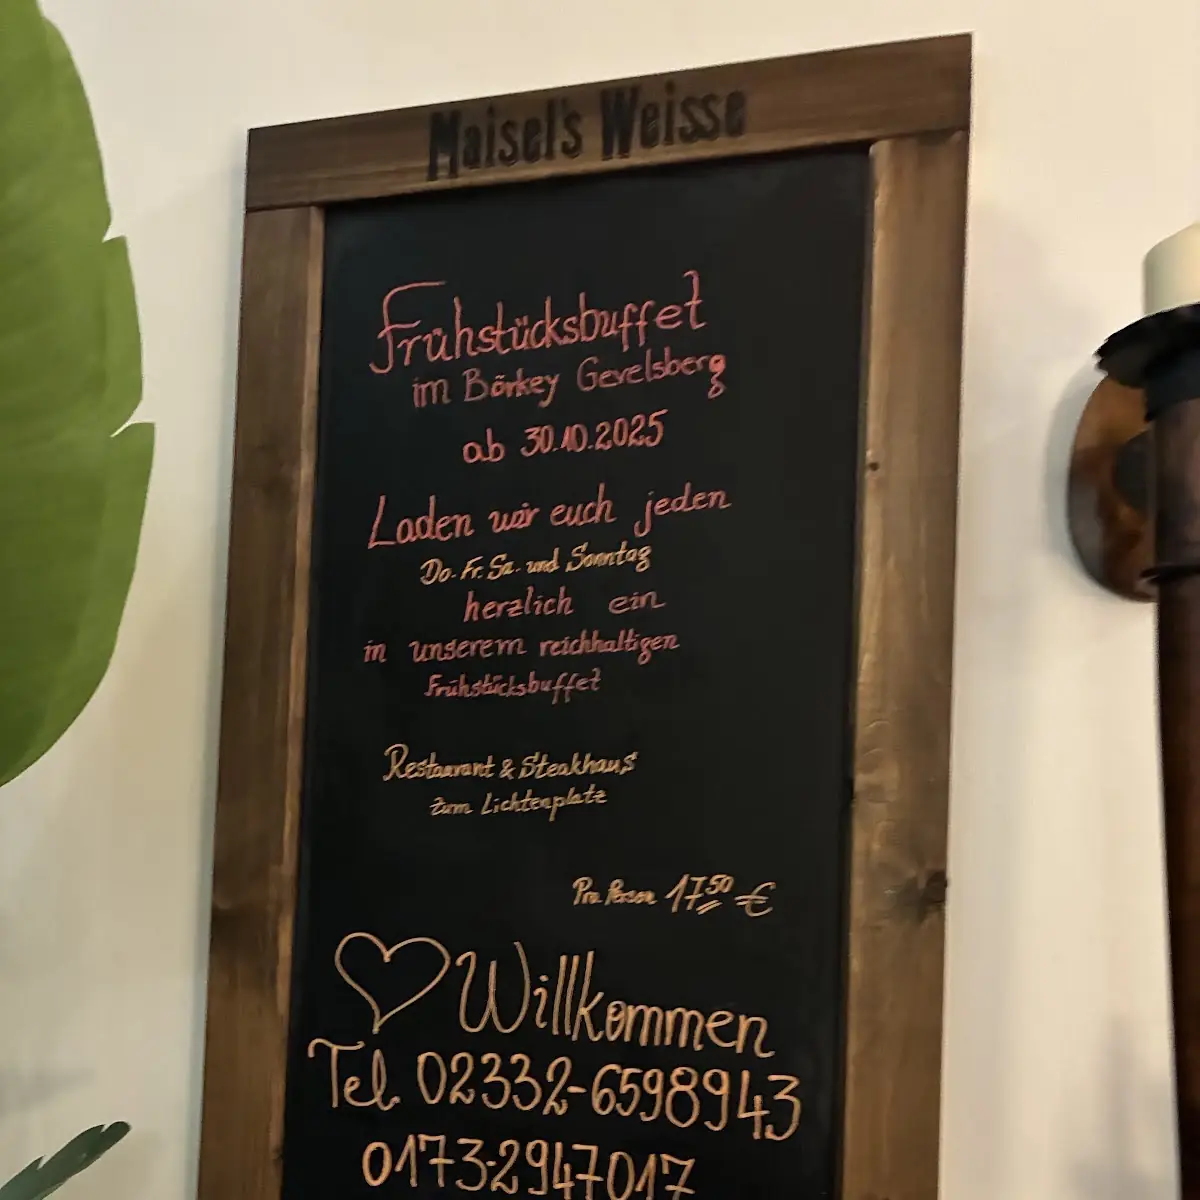 Maisel's Weisse
Frühstücksbuffet
im Börkey Gevelsberg
ab 30.10.2025
Laden wir euch jeden
Do. Fr. Sa. und Sonntag
herzlich ein
in unserem reichhaltigen
Frühstücksbuffet
Restaurant & Steakhaus
zum Lichtenplatz
Pro Person 17⁵⁰ €
Willkommen
Tel. 02332-6598943
0173-2947017